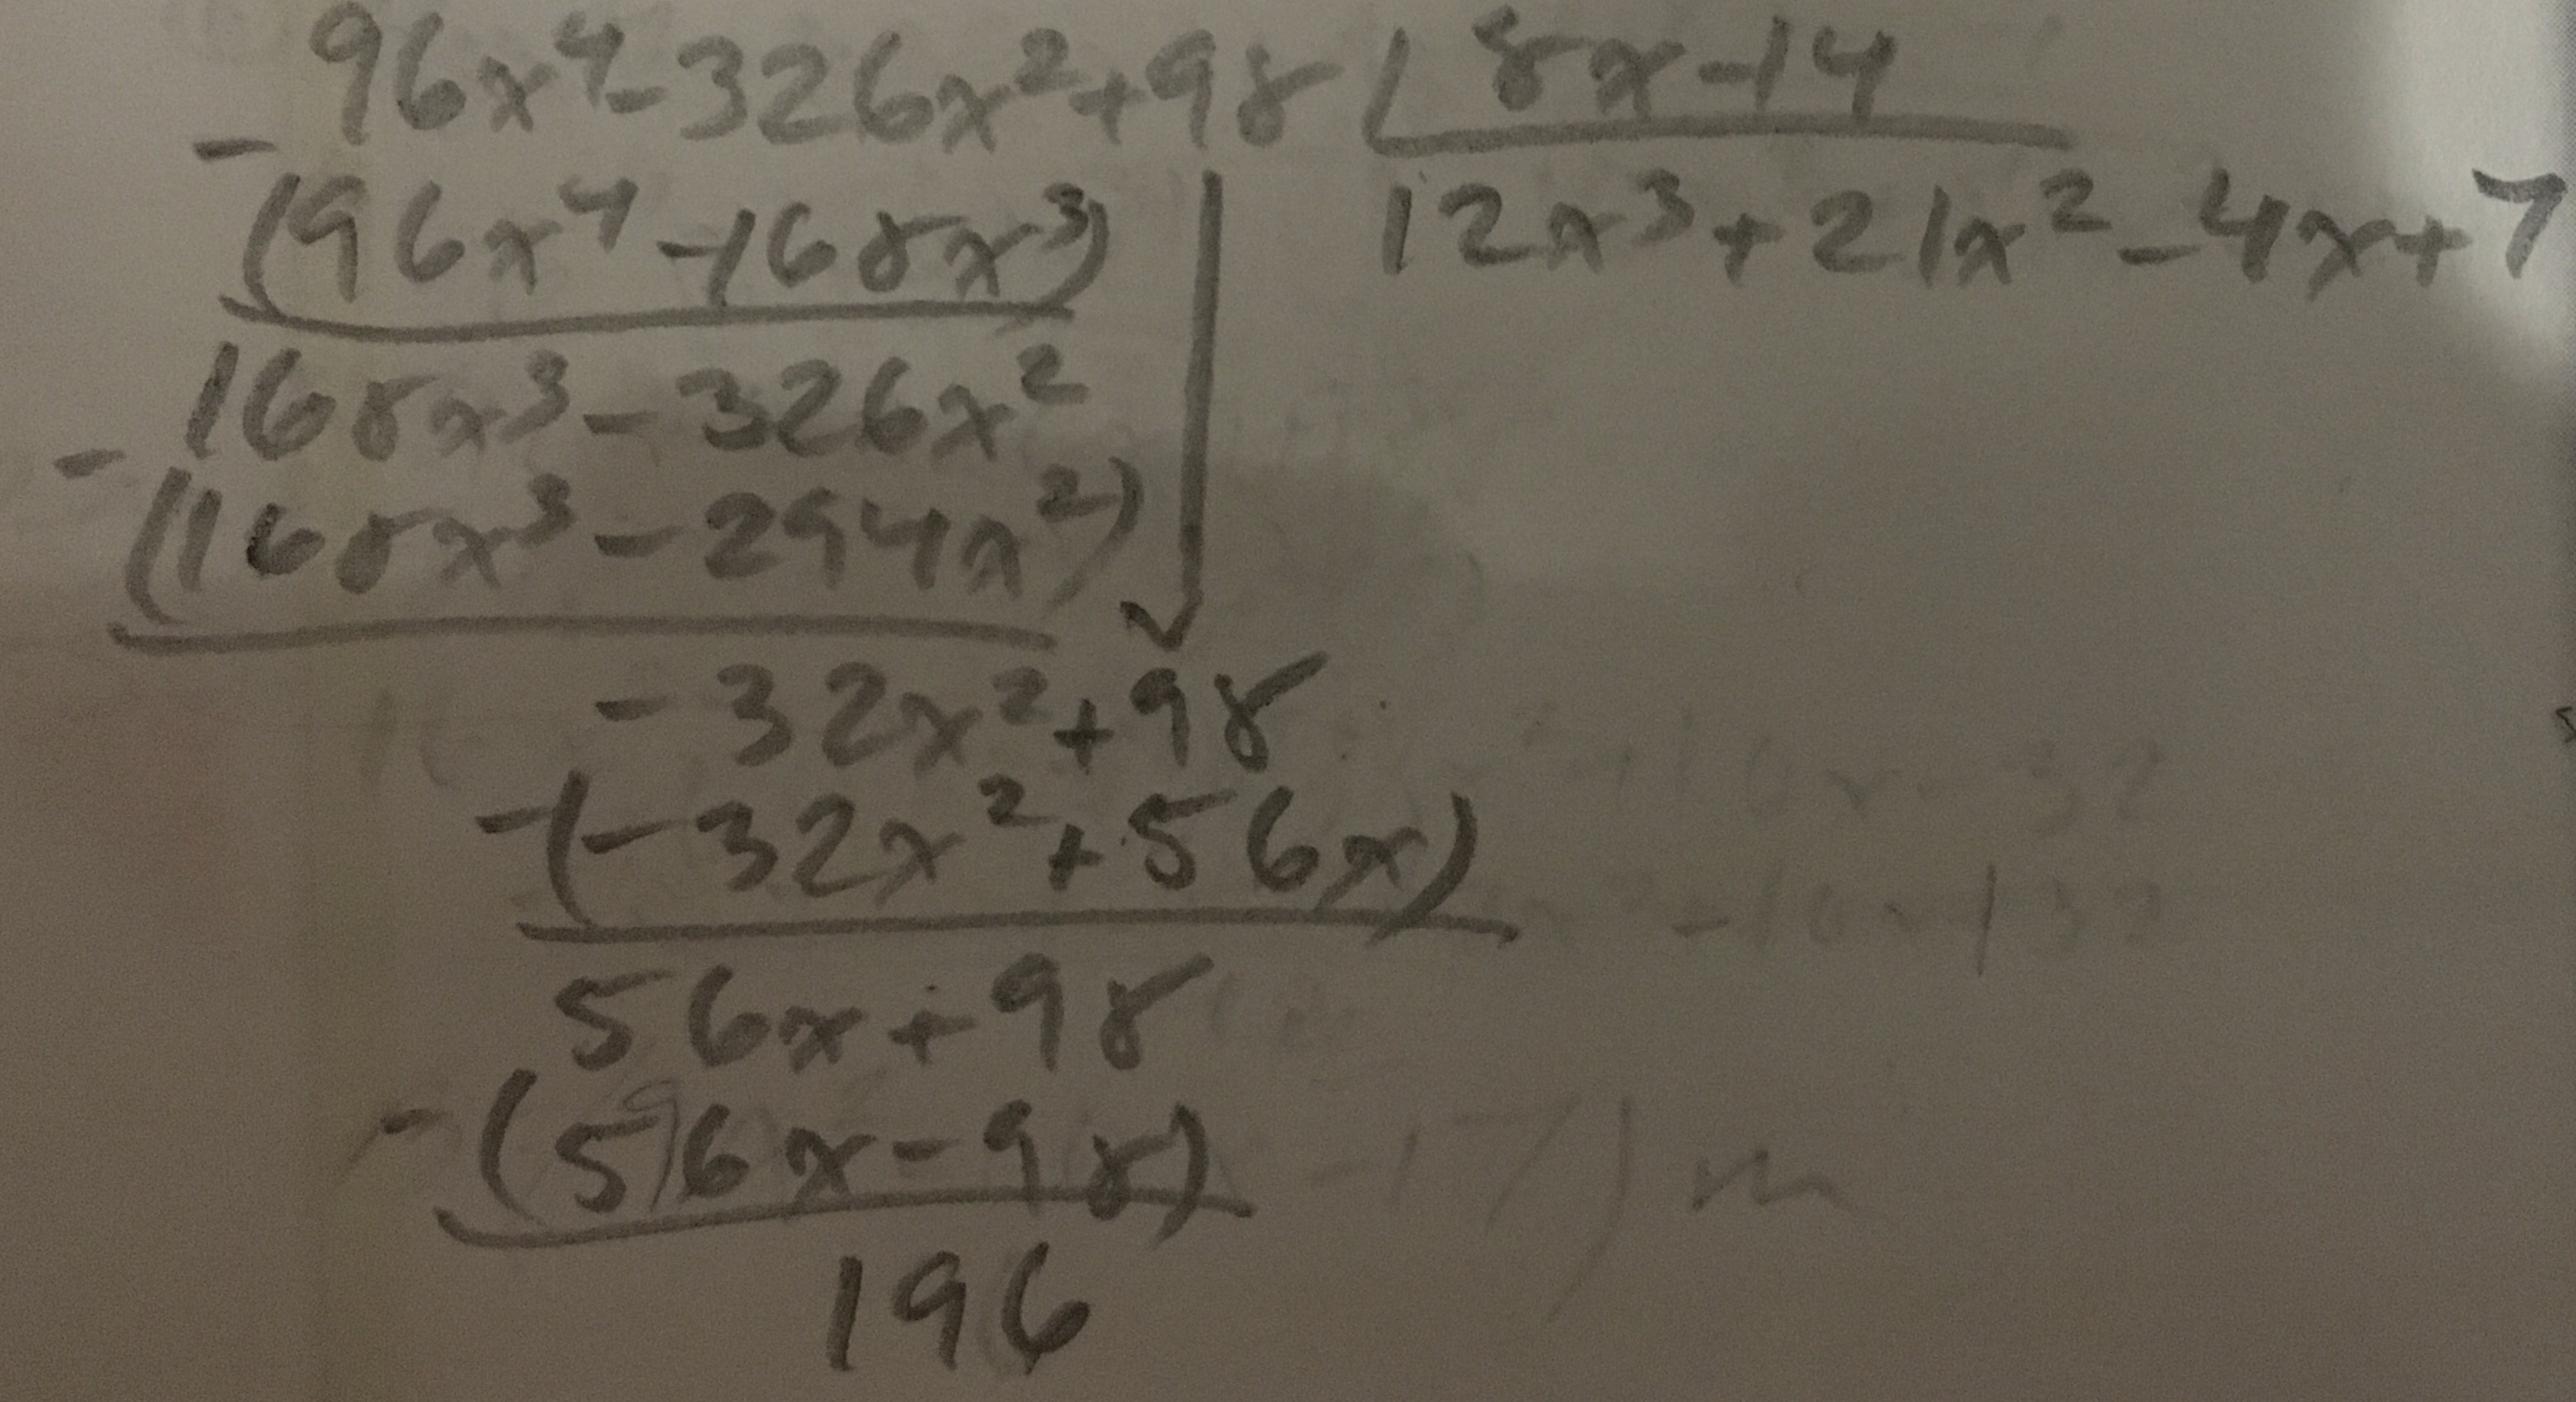 96x⁴-326x²+98 8x-14
-(96x⁴-168x³) 12x³+21x²-4x+7
168x³-326x²
-(168x³-294x²)
-32x²+98
-(-32x²+56x)
56x+98
-(56x-98)
196